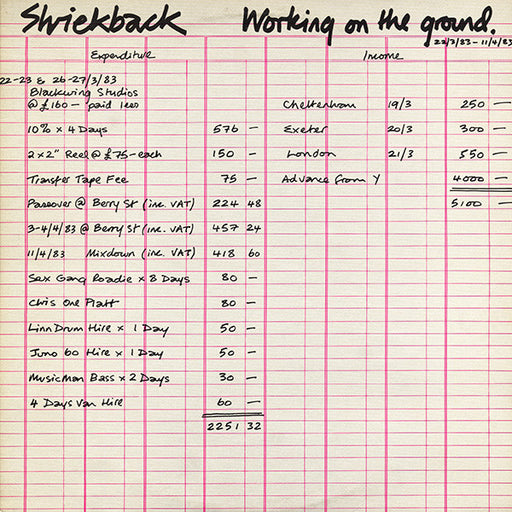 Shriekback Working on the ground.
22/3/83 - 11/4/83
Expenditure Income
22-23 & 26-27/3/83
Blackwing Studios
@ £160 - paid less Cheltenham 19/3 250 —
10% x 4 Days 576 — Exeter 20/3 300 —
2 x 2" Reel @ £75 - each 150 — London 21/3 550 —
Transfer Tape Fee 75 — Advance from Y 4000 —
Passover @ Berry St (inc. VAT) 224 48 5100 —
3-4/4/83 @ Berry St (inc. VAT) 457 24
11/4/83 Mixdown (inc. VAT) 418 60
Sex Gang Roadie x 8 Days 80 —
Chris One Platt 80 —
LinnDrum Hire x 1 Day 50 —
Juno 60 Hire x 1 Day 50 —
MusicMan Bass x 2 Days 30 —
4 Days Van Hire 60 —
2251 32